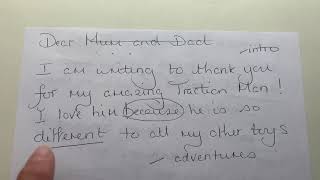 Dear Mum and Dad
intro
I am writing to thank you
for my amazing Traction Man!
I love him because he is so
different to all my other toys
adventures